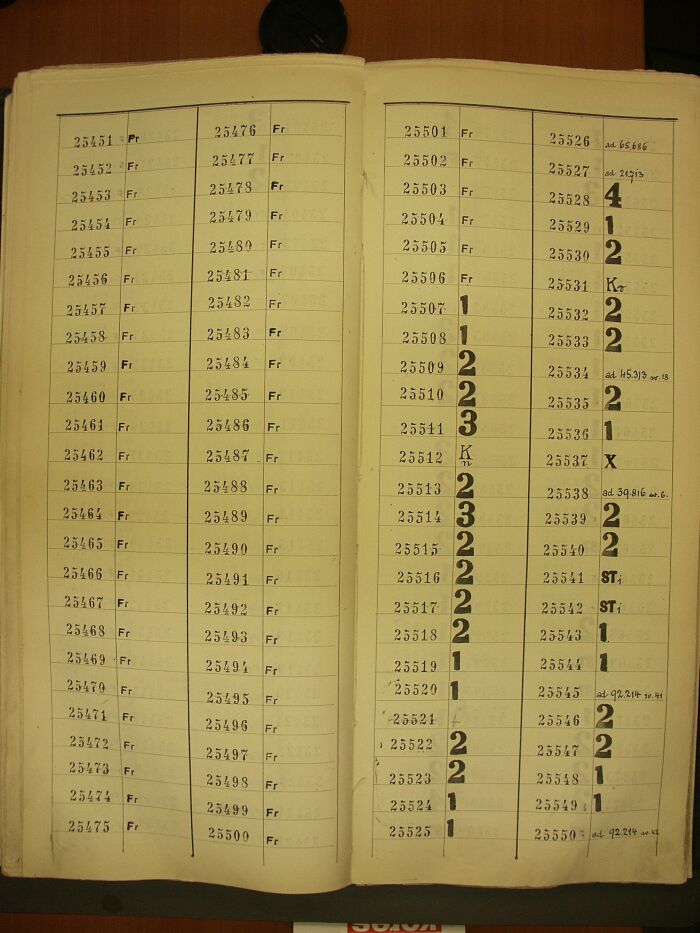 25451 Fr
25452 Fr
25453 Fr
25454 Fr
25455 Fr
25456 Fr
25457 Fr
25458 Fr
25459 Fr
25460 Fr
25461 Fr
25462 Fr
25463 Fr
25464 Fr
25465 Fr
25466 Fr
25467 Fr
25468 Fr
25469 Fr
25470 Fr
25471 Fr
25472 Fr
25473 Fr
25474 Fr
25475 Fr
25476 Fr
25477 Fr
25478 Fr
25479 Fr
25480 Fr
25481 Fr
25482 Fr
25483 Fr
25484 Fr
25485 Fr
25486 Fr
25487 Fr
25488 Fr
25489 Fr
25490 Fr
25491 Fr
25492 Fr
25493 Fr
25494 Fr
25495 Fr
25496 Fr
25497 Fr
25498 Fr
25499 Fr
25500 Fr
25501 Fr
25502 Fr
25503 Fr
25504 Fr
25505 Fr
25506 Fr
25507 1
25508 1
25509 2
25510 2
25511 3
25512 Kn
25513 2
25514 3
25515 2
25516 2
25517 2
25518 2
25519 1
25520 1
25521
25522 2
25523 2
25524 1
25525 1
25526 ad 65,686
25527 ad 21,713
25528 4
25529 1
25530 2
25531 Kv
25532 2
25533 2
25534 ad 45.313 sv. 18
25535 2
25536 1
25537 X
25538 ad 39.816 sv. 6.
25539 2
25540 2
25541 STi
25542 STi
25543 1
25544 1
25545 ad 92.214 sv. 41
25546 2
25547 2
25548 1
25549 1
25550 ad 92.214 sv.